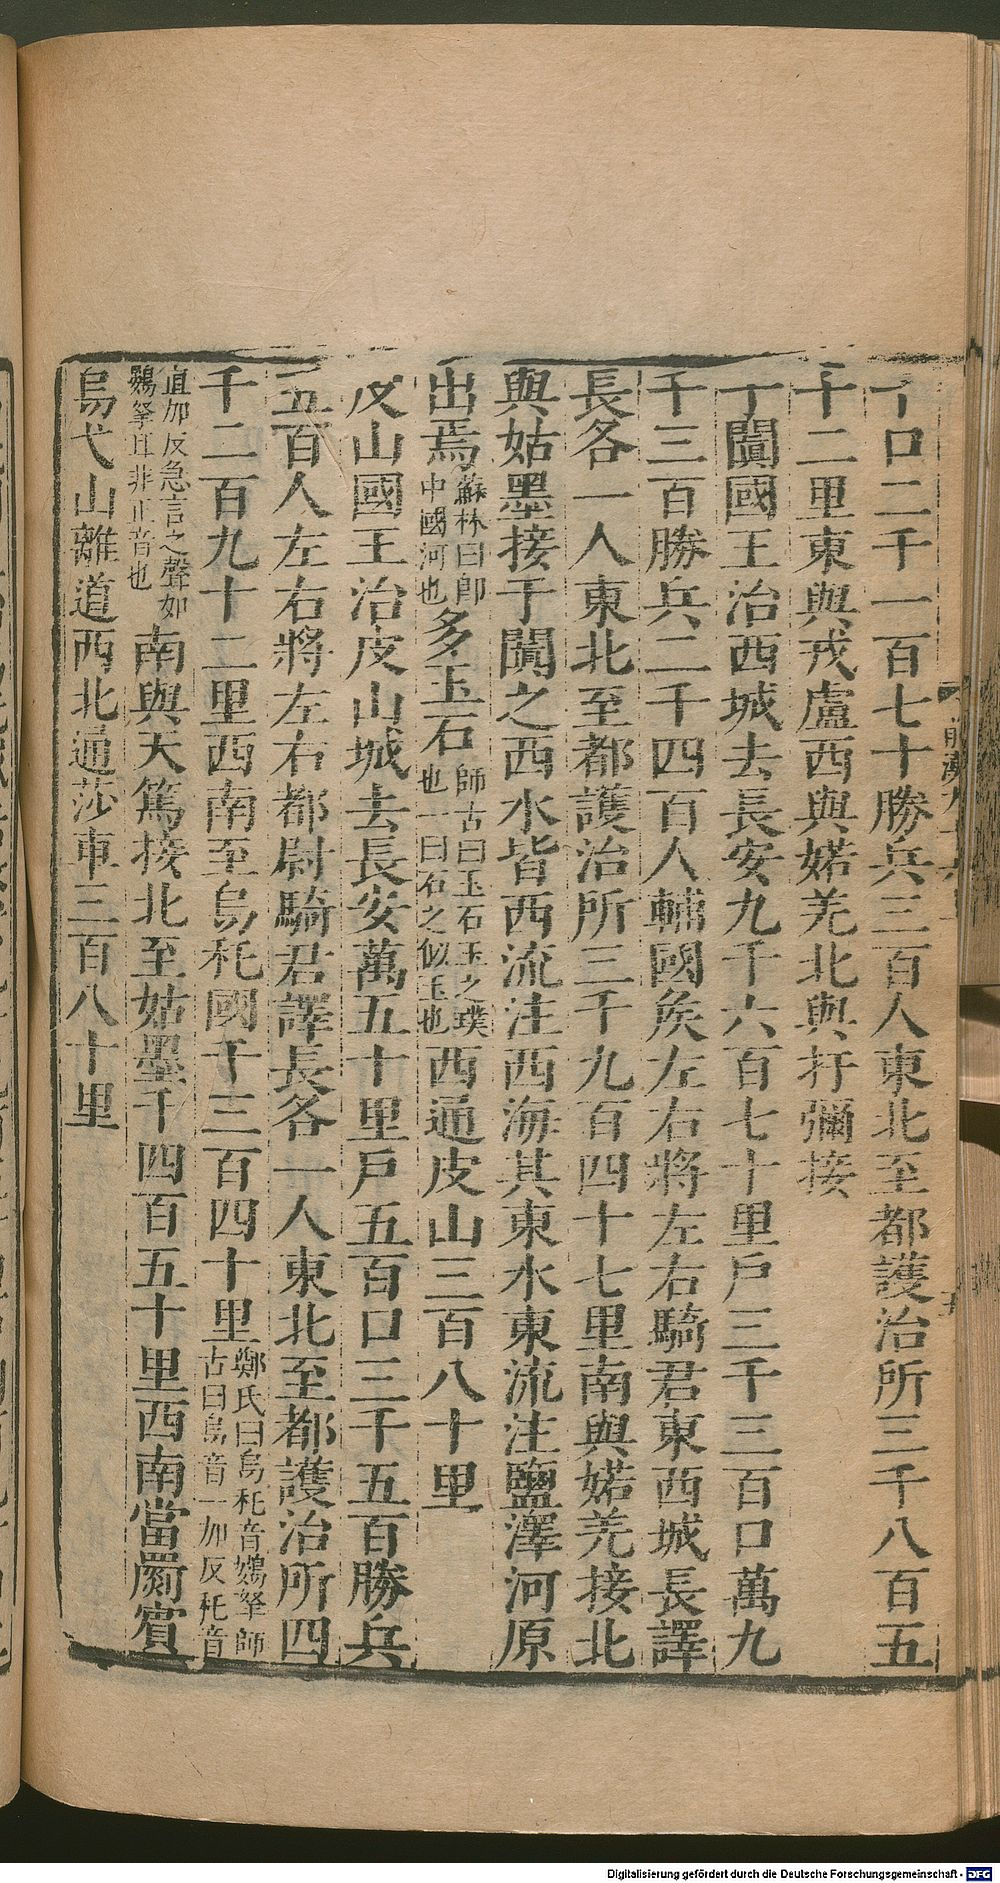 口二千一百七十勝兵三百人東北至都護治所三千八百五
十二里東與戎盧西與婼羌北與扜彌接
于闐國王治西城去長安九千六百七十里戶三千三百口萬九
千三百勝兵二千四百人輔國矦左右將左右騎君東西城長譯
長各一人東北至都護治所三千九百四十七里南與婼羌接北
與姑墨接于闐之西水皆西流注西海其東水東流注鹽澤河原
出焉蘇林曰卽中國河也多玉石師古曰玉石玉之璞也一曰石之似玉也西通皮山三百八十里
皮山國王治皮山城去長安萬五十里戶五百口三千五百勝兵
五百人左右將左右都尉騎君譯長各一人東北至都護治所四
千二百九十二里西南至烏秅國千三百四十里鄭氏曰烏秅音鷃拏師古曰烏音一加反秅音
直加反急言之聲如鷃拏耳非正音也南與天篤接北至姑墨千四百五十里西南當罽賓
烏弋山離道西北通莎車三百八十里
Digitalisierung gefördert durch die Deutsche Forschungsgemeinschaft - DFG